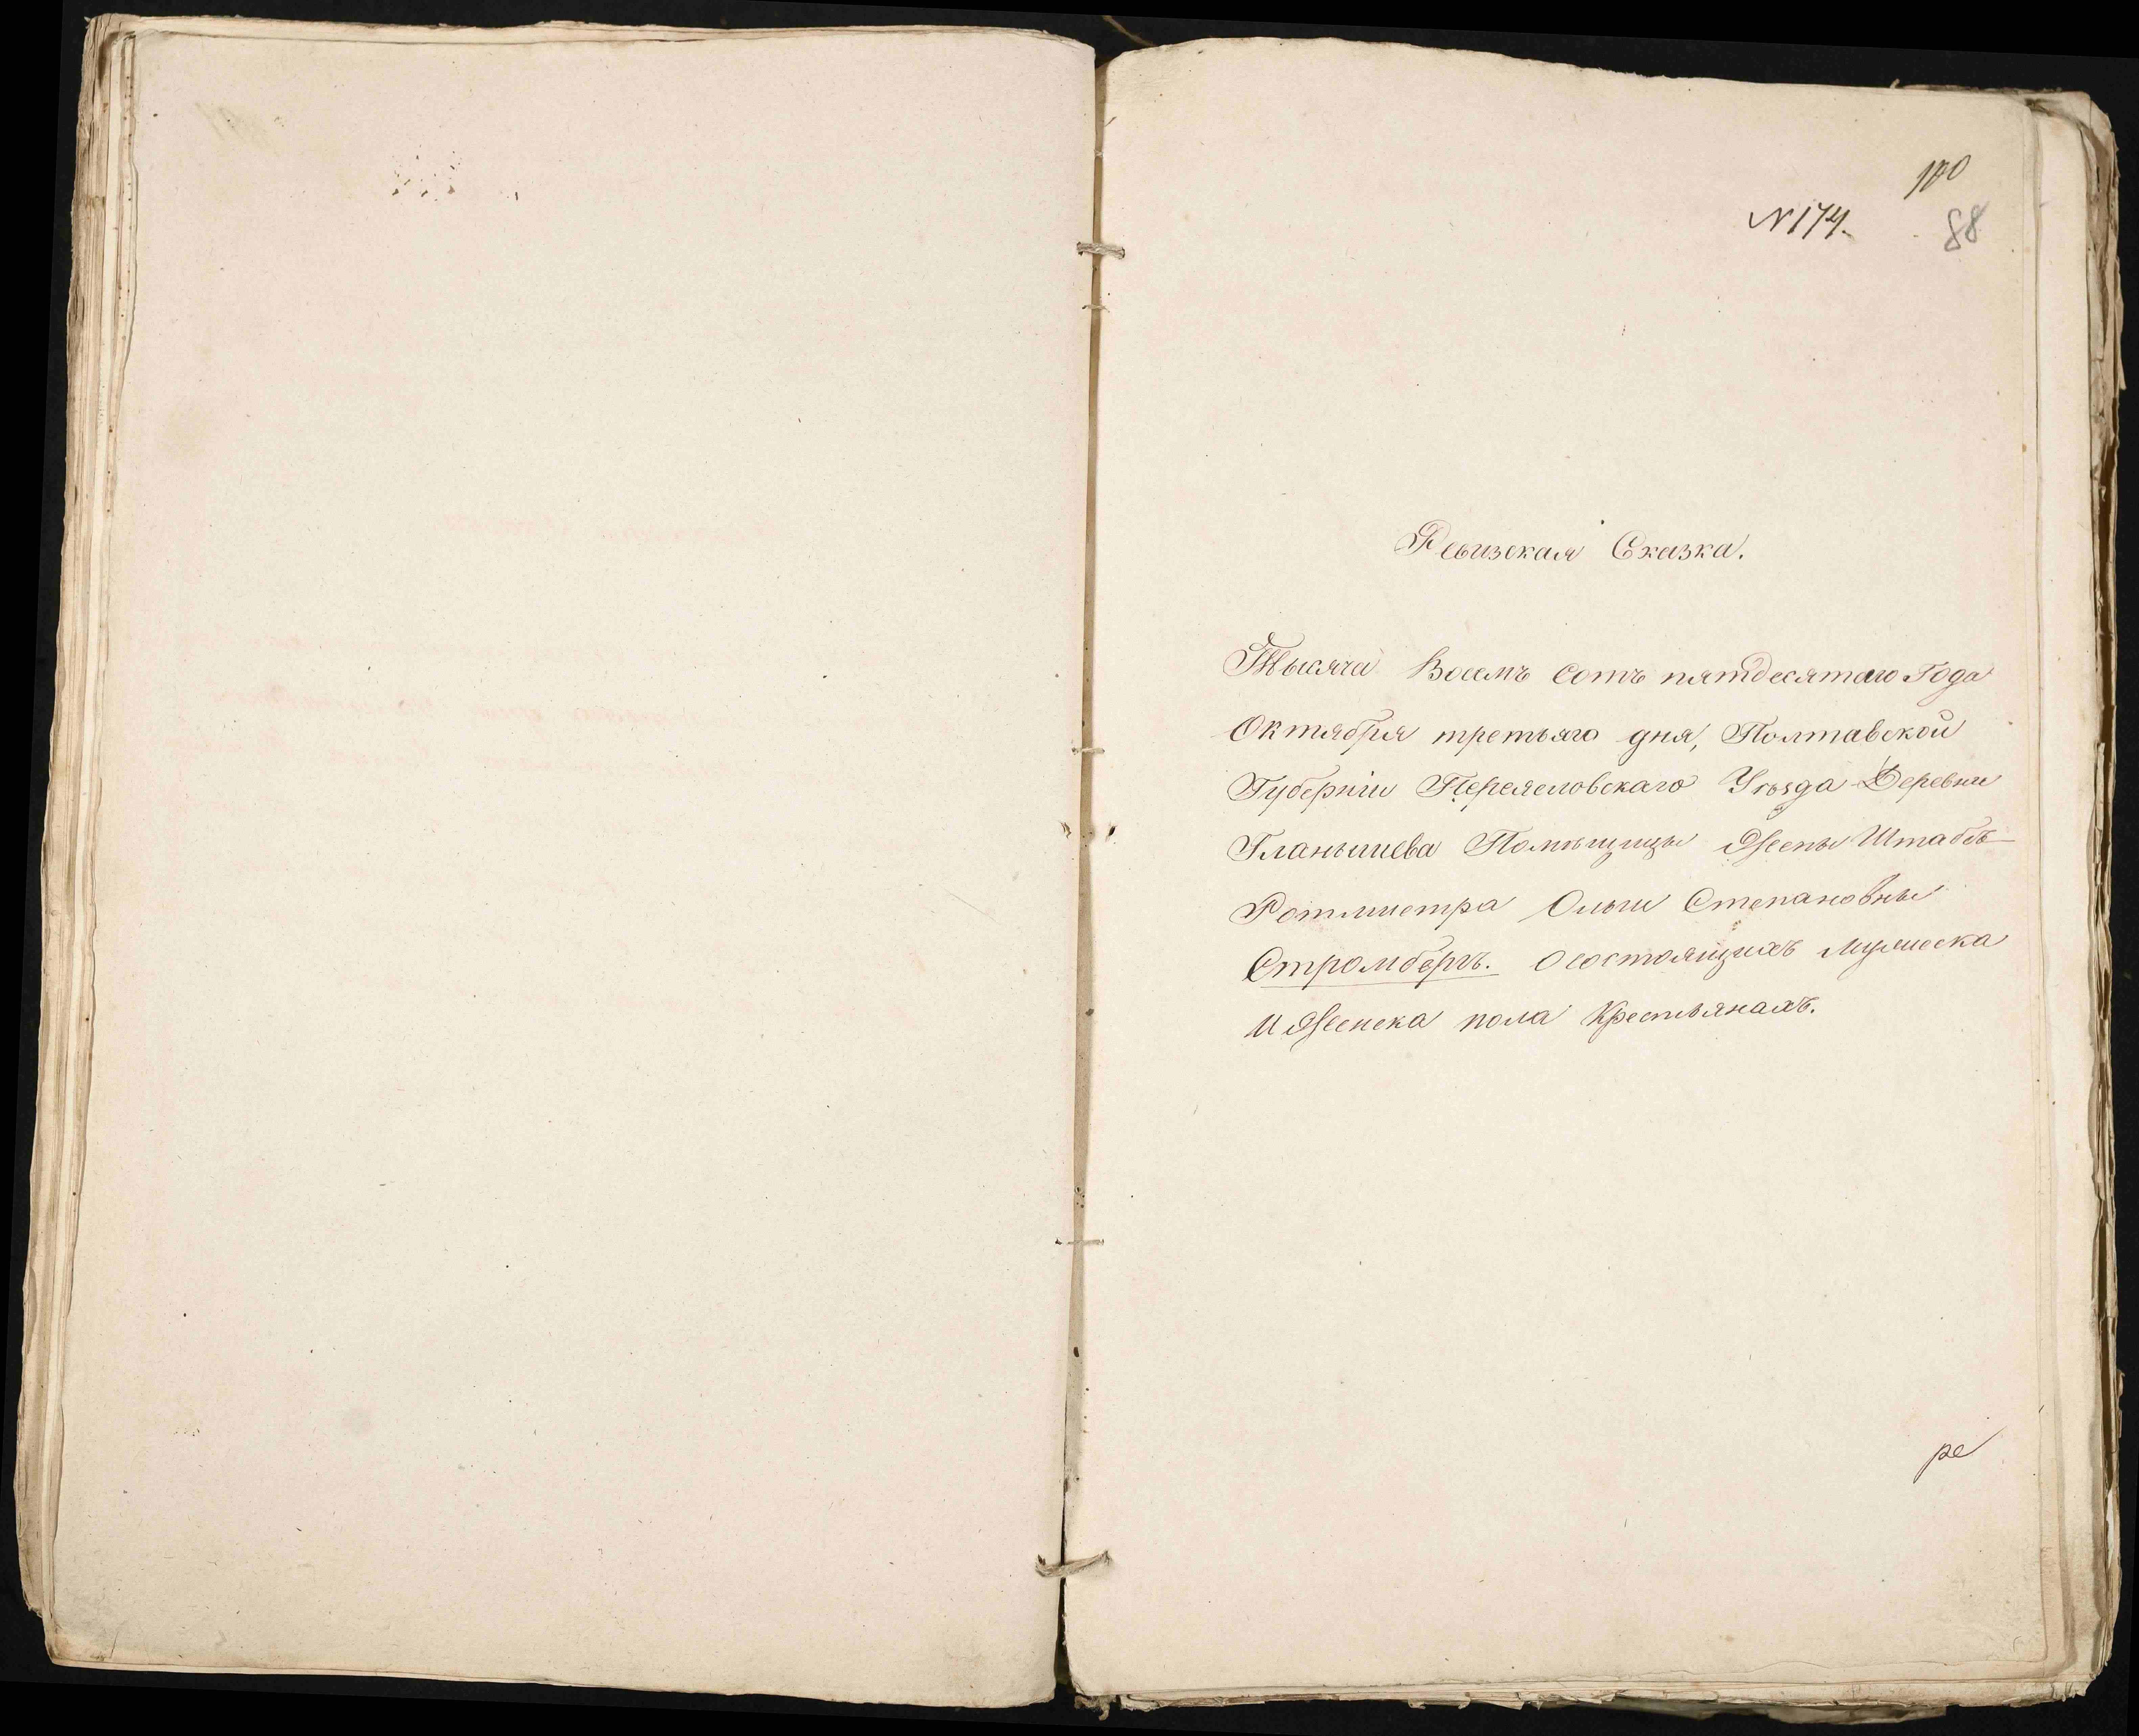 100
N 174.
88
Ревизская Сказка.
Тысяча Восемъ сотъ пятдесятаго Года
Октября третьяго дня, Полтавской
Губерніи Переяславскаго Уѣзда Деревни
Гланышева Помѣщицы Жены Штабсъ
Ротмистра Ольги Степановны
Стромбергъ. О состоящихъ мужеска
и Женска пола Крестьянахъ.
ре